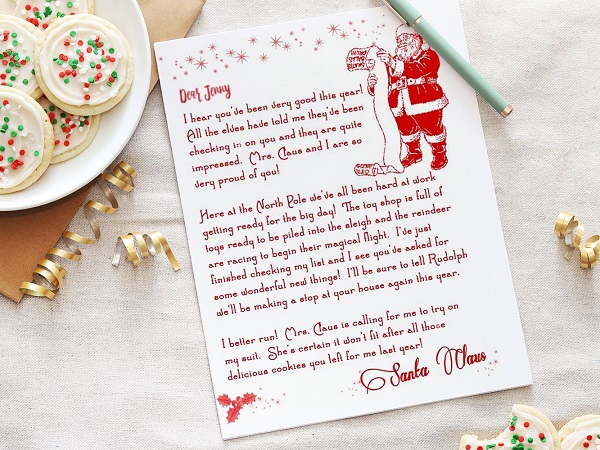 Dear Jenny
I hear you've been very good this year!
All the elves have told me they've been
checking in on you and they are quite
impressed. Mrs. Claus and I are so
very proud of you!
Here at the North Pole we've all been hard at work
getting ready for the big day! The toy shop is full of
toys ready to be piled into the sleigh and the reindeer
are racing to begin their magical flight. I've just
finished checking my list and I see you've asked for
some wonderful new things! I'll be sure to tell Rudolph
we'll be making a stop at your house again this year.
I better run! Mrs. Claus is calling for me to try on
my suit. She's certain it won't fit after all those
delicious cookies you left for me last year!
Santa Claus